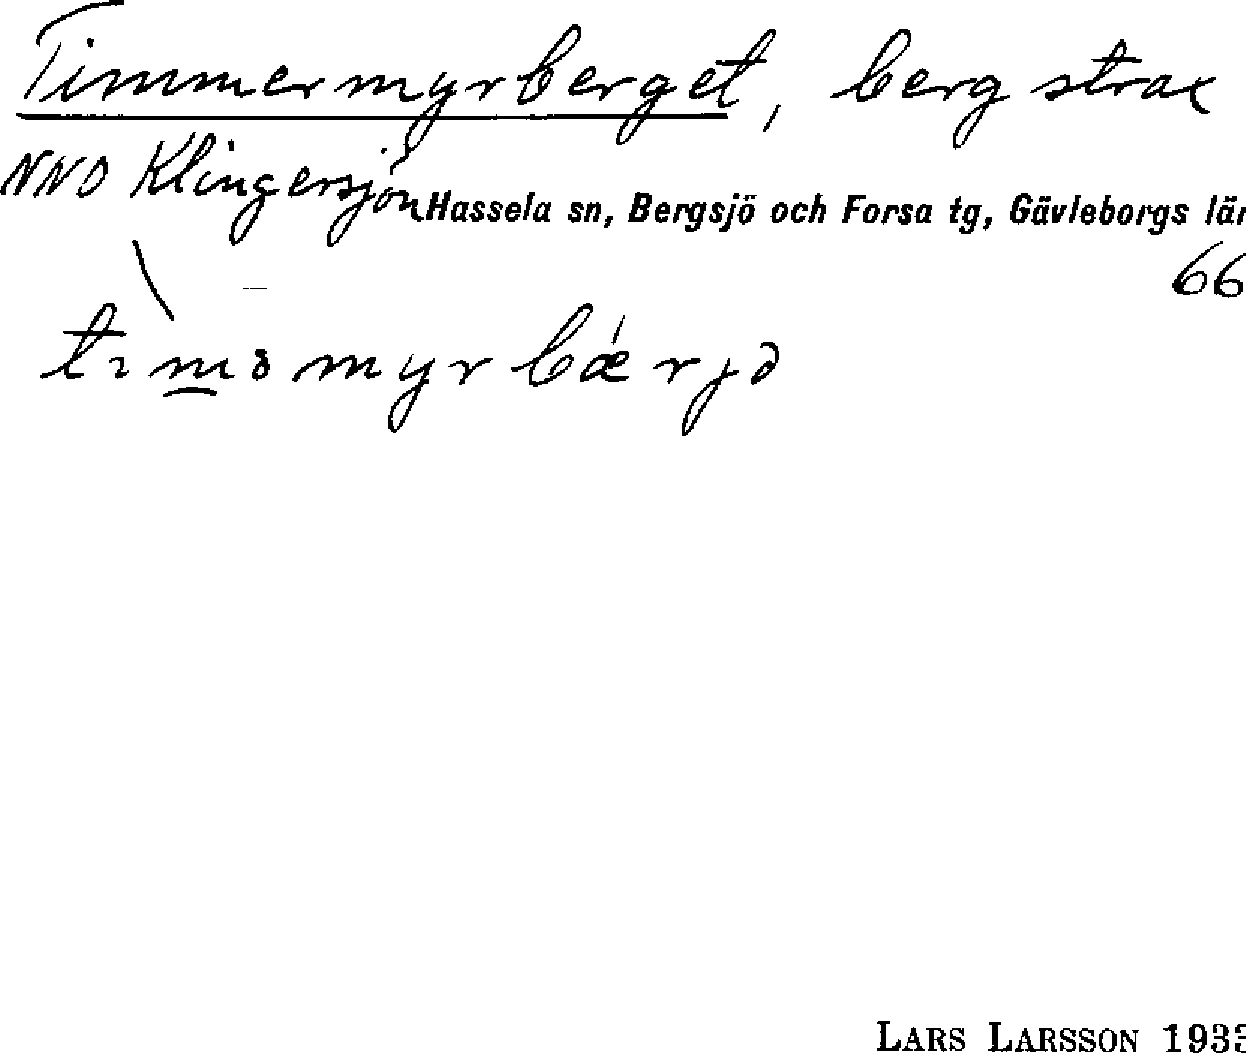 Timmermyrberget, berg strax
NNO Klingersjön
Hassela sn, Bergsjö och Forsa tg, Gävleborgs län
66
LARS LARSSON 193